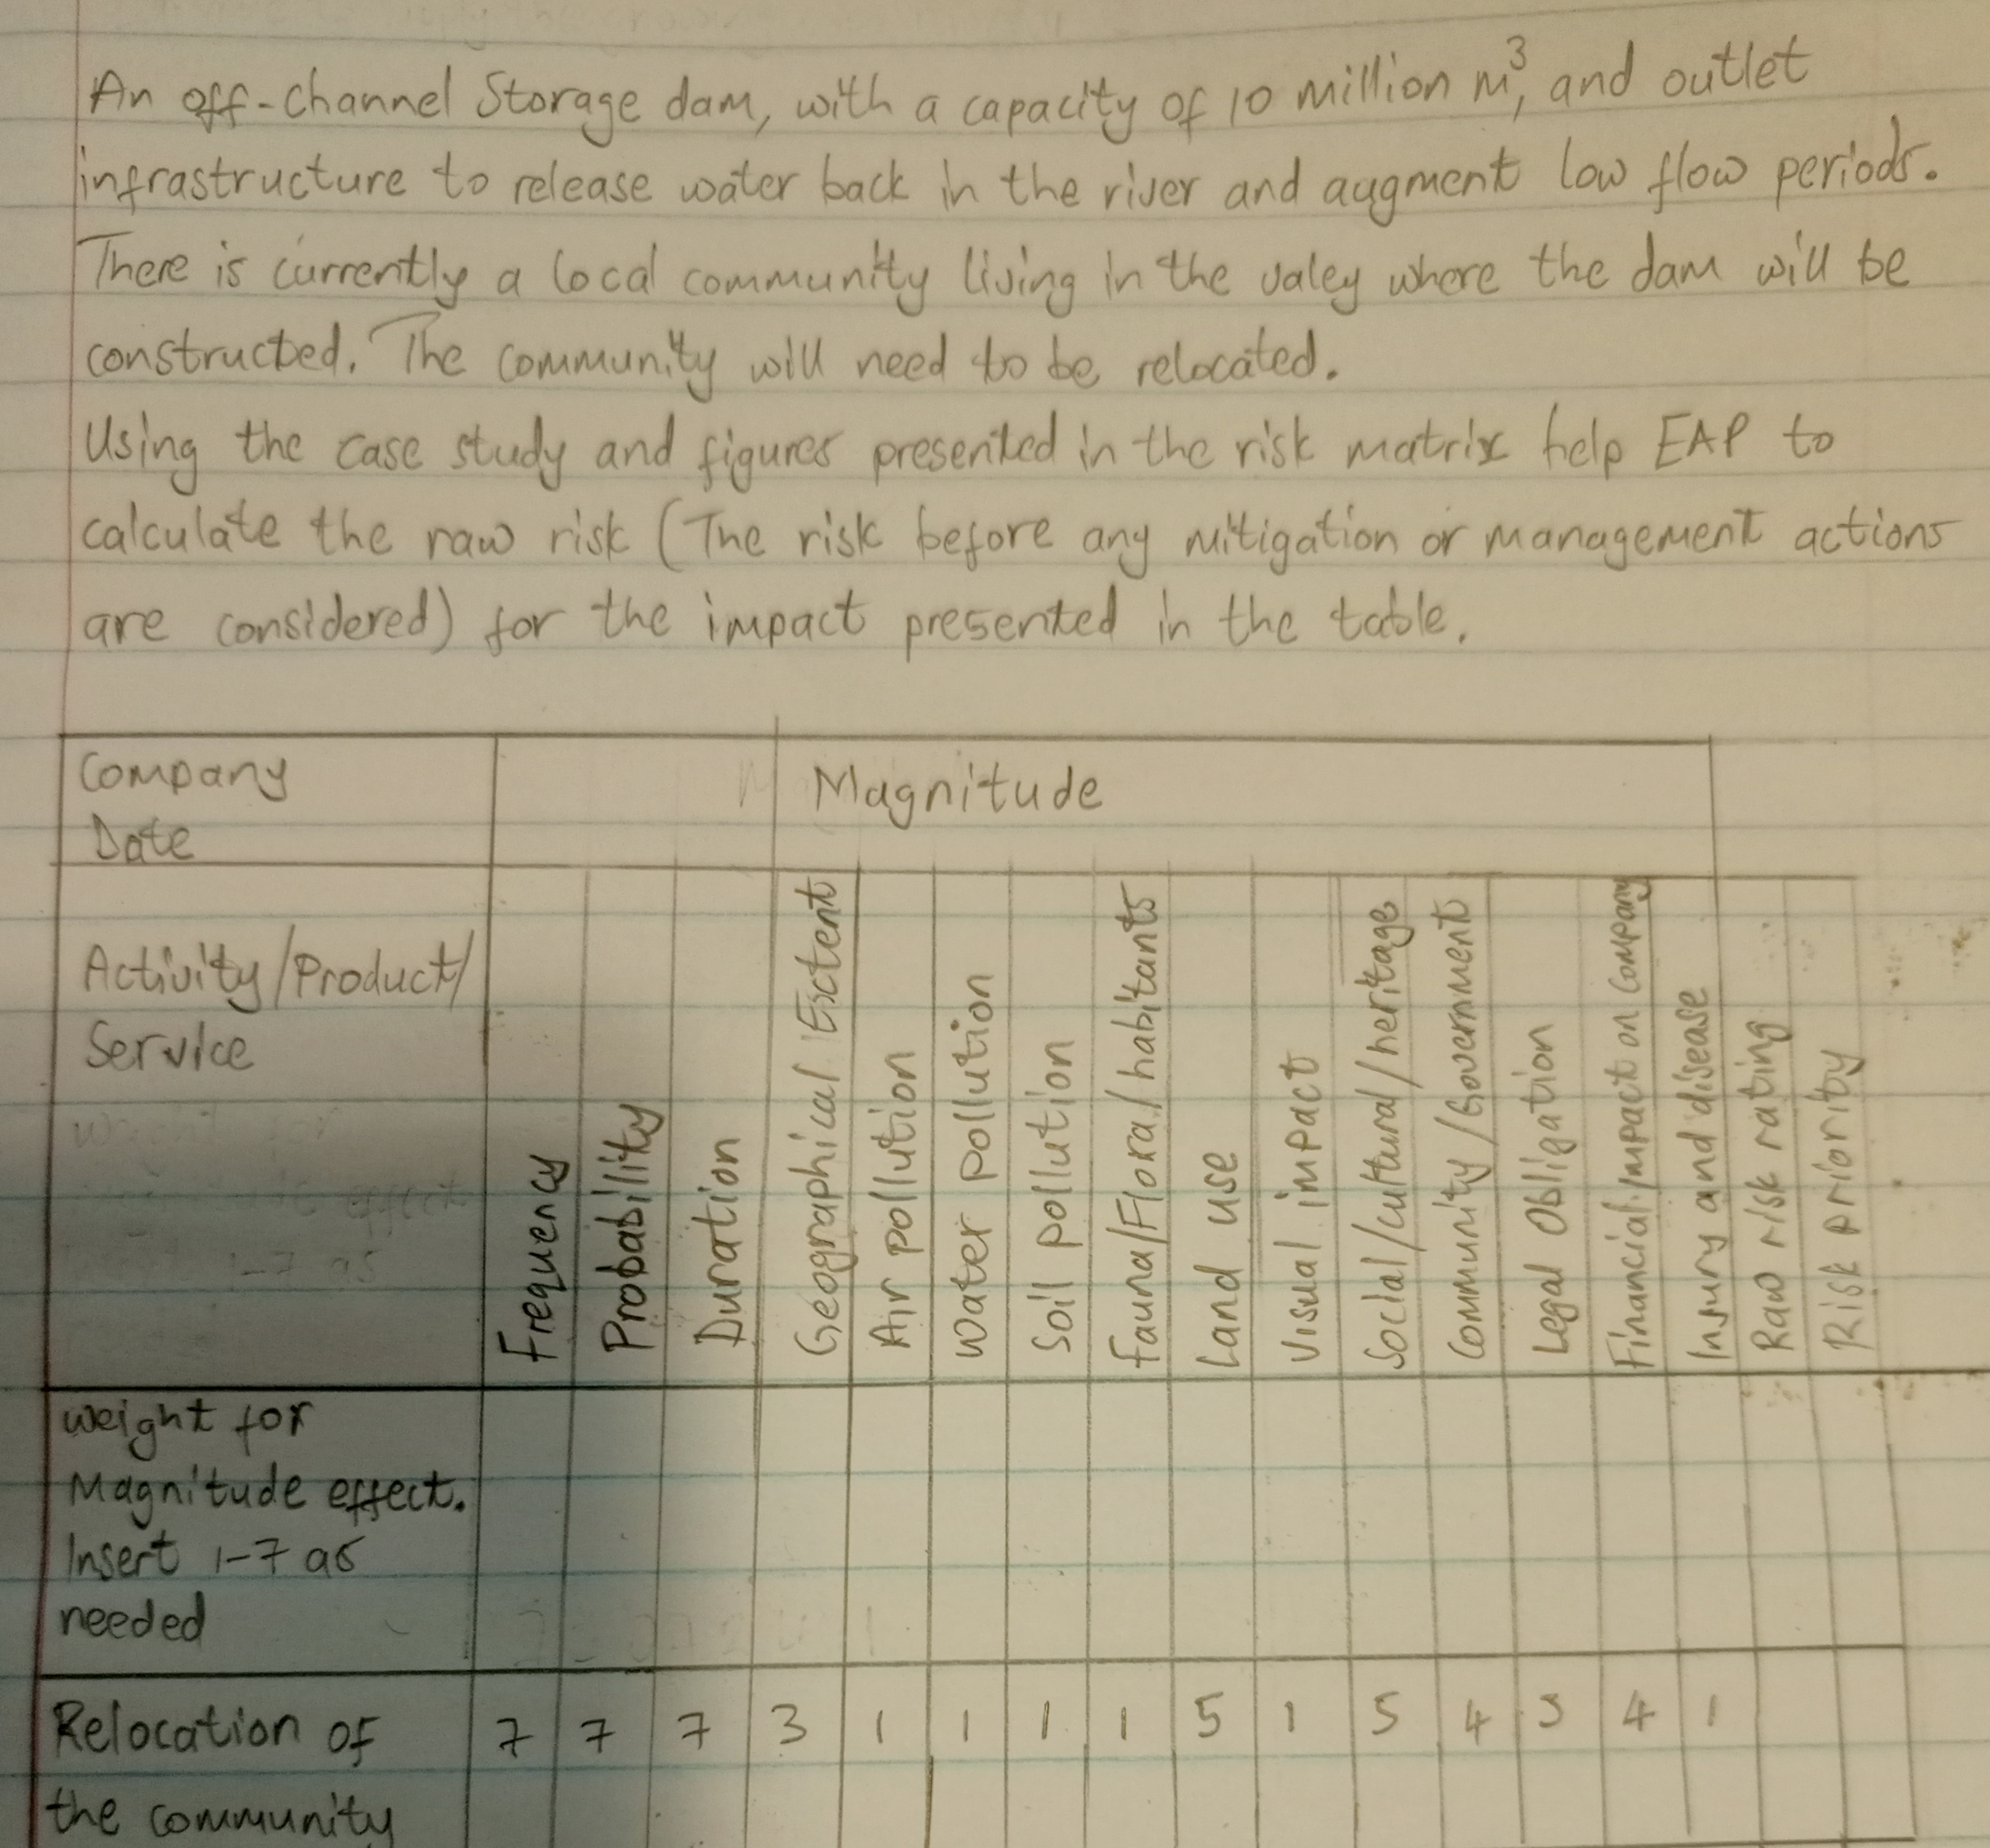 An off-channel Storage dam, with a capacity of 10 million m³, and outlet
infrastructure to release water back in the river and augment low flow periods.
There is currently a local community living in the valey where the dam will be
constructed. The community will need to be relocated.
Using the case study and figures presented in the risk matrix help EAP to
calculate the raw risk (The risk before any mitigation or management actions
are considered) for the impact presented in the table.
Company
Date
Magnitude
Activity/Product/
Service
Frequency
Probability
Duration
Geographical Extent
Air pollution
Water pollution
Soil pollution
Fauna/Flora/habitants
Land use
Visual impact
Social/cultural/heritage
Community/Government
Legal Obligation
Financial impact on Company
Insury and disease
Raw risk rating
Risk priority
Weight for
Magnitude effect.
Insert 1-7 as
needed
Relocation of 7 7 7 3 1 1 1 1 5 1 5 4 4 1
the community